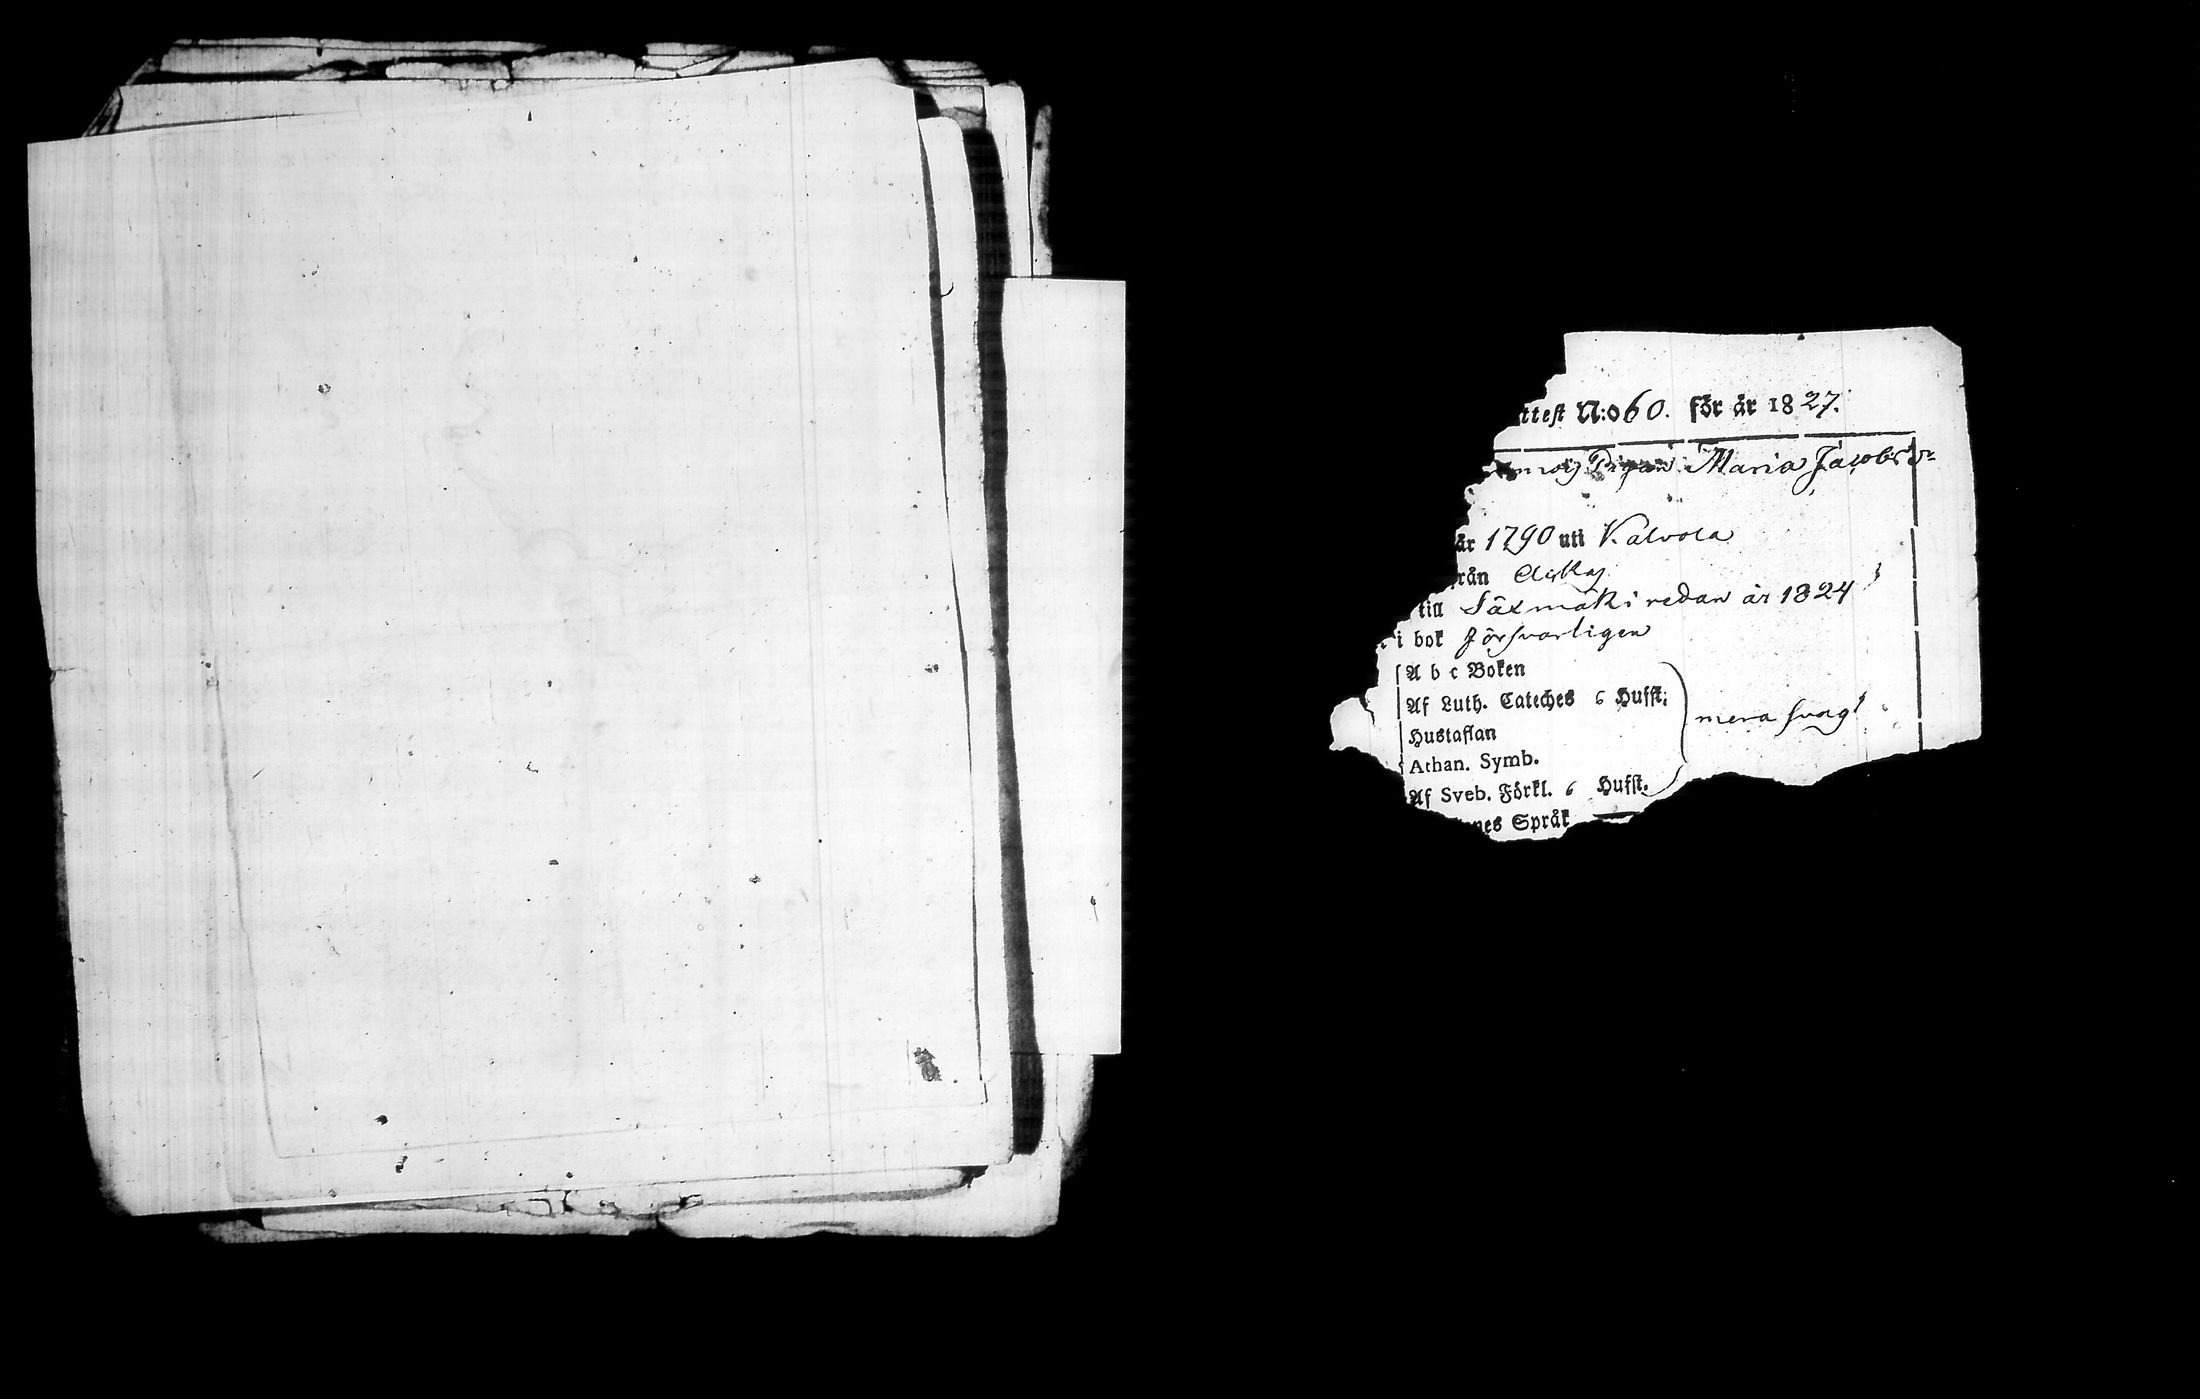 ttest N:o 60. för år 1827.
Pigan Maria Jacobsdr
år 1790 uti Kalvola
rån
till Säxmäki redan år 1824
i bok försvarligen
A b c Boken
Af Luth. Cateches 6 Hufst.
Hustaflan
mera svagt
Athan. Symb.
Af Sveb. Förkl. 6 Hufst.
nes Språk —